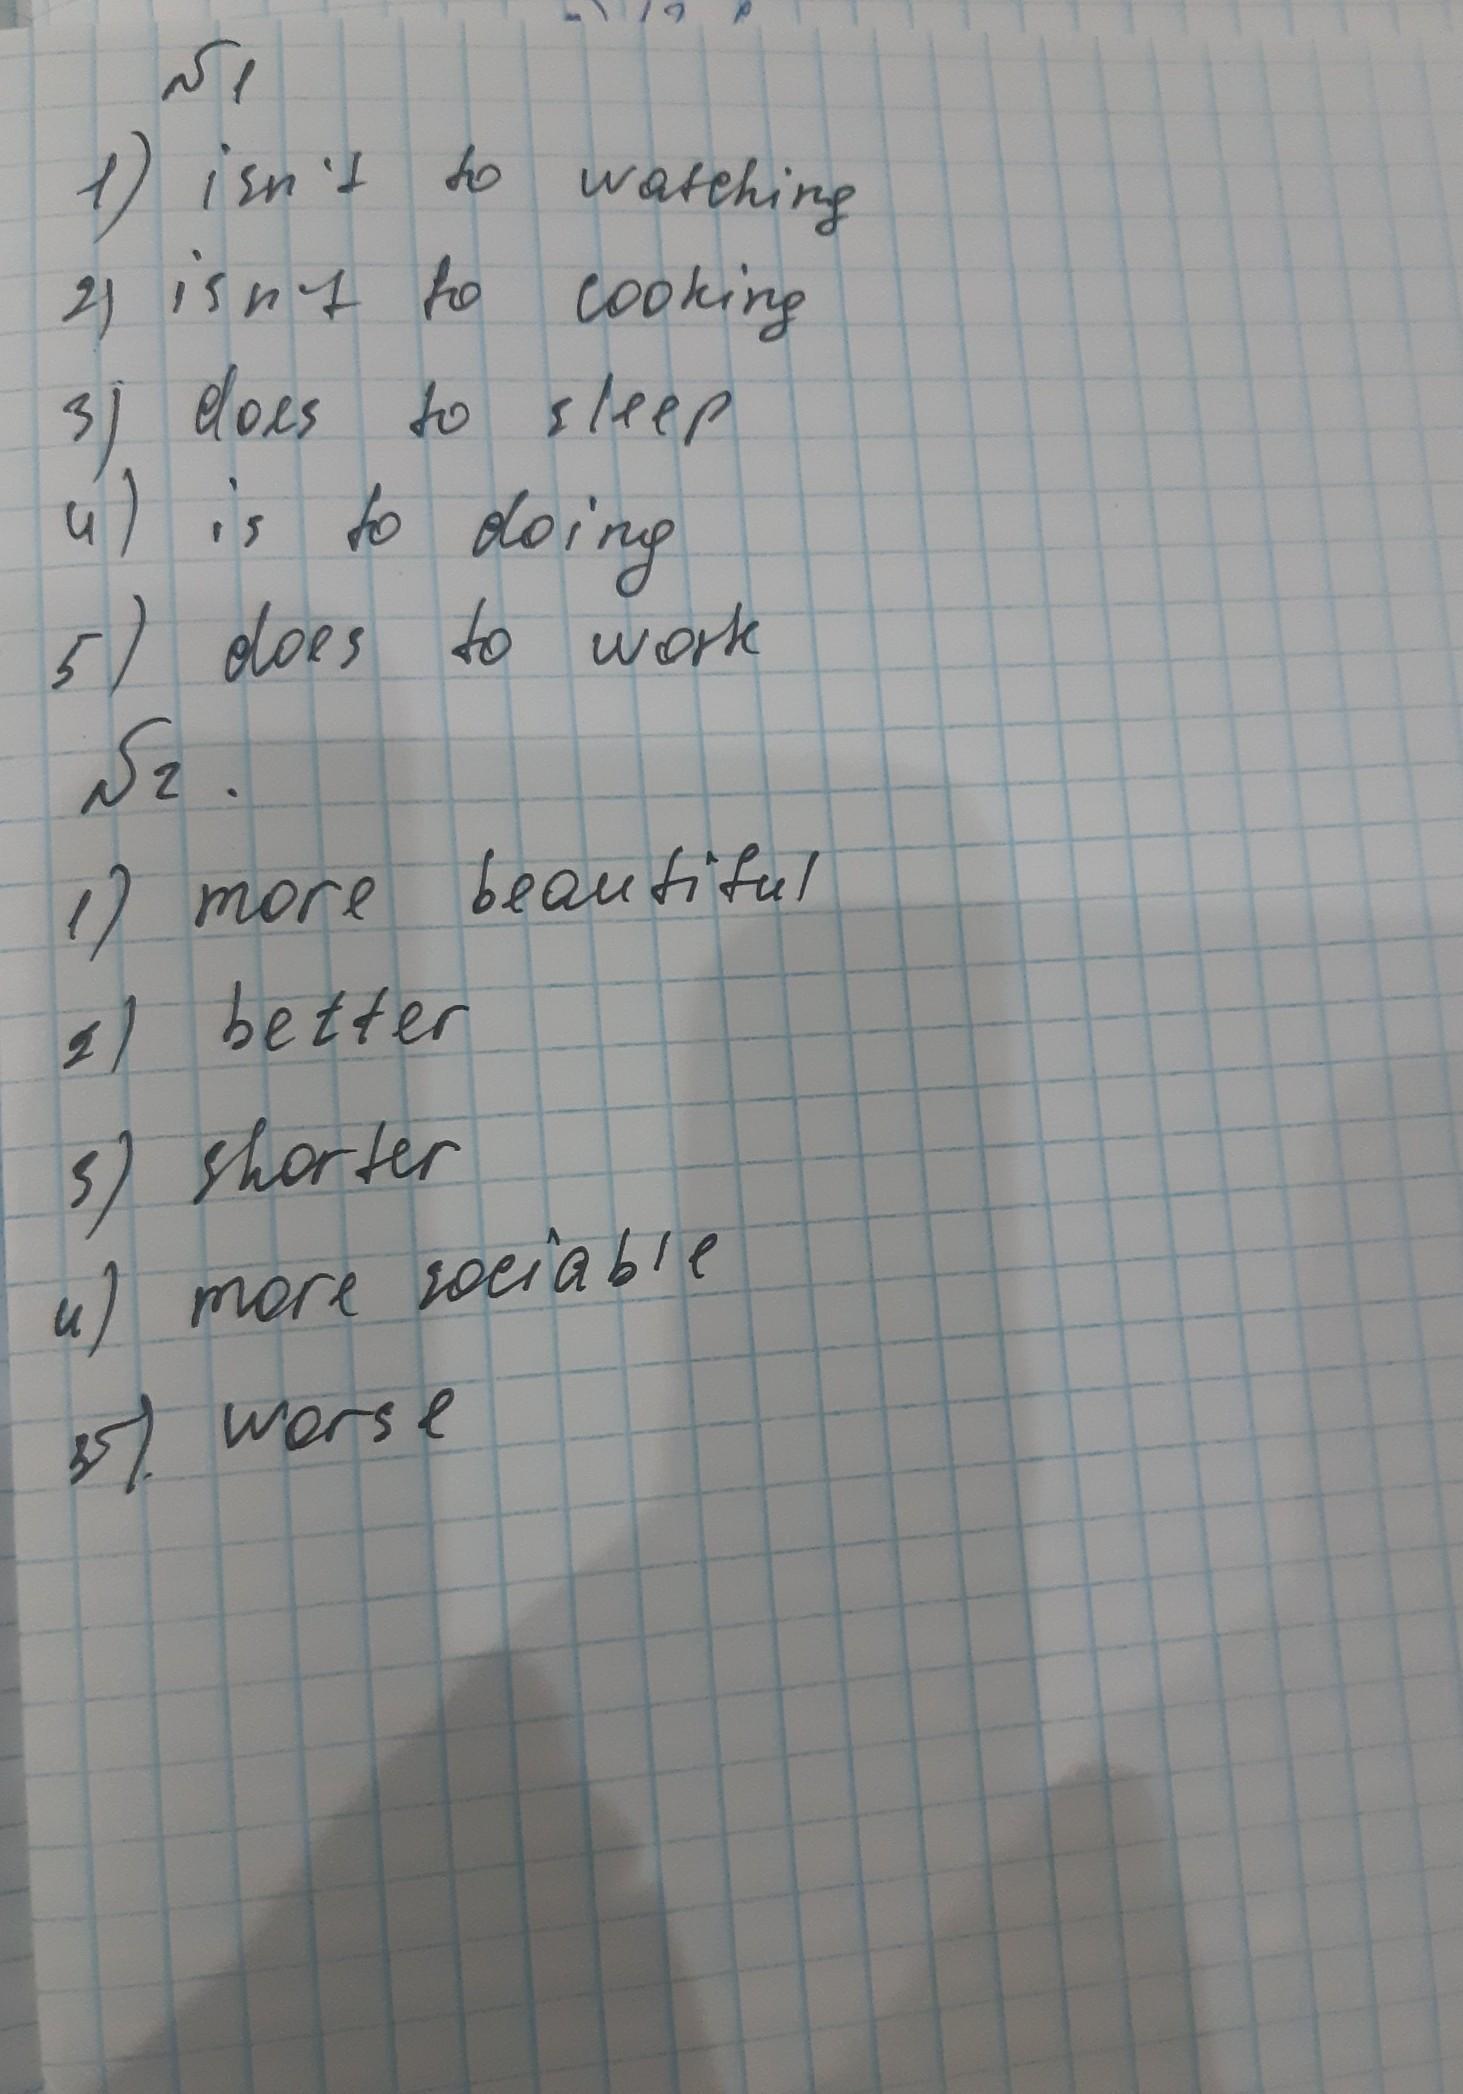 №1
1) isn't to watching
2) isn't to cooking
3) does to sleep
4) is to doing
5) does to work
№2.
1) more beautiful
2) better
3) shorter
4) more sociable
5) worse